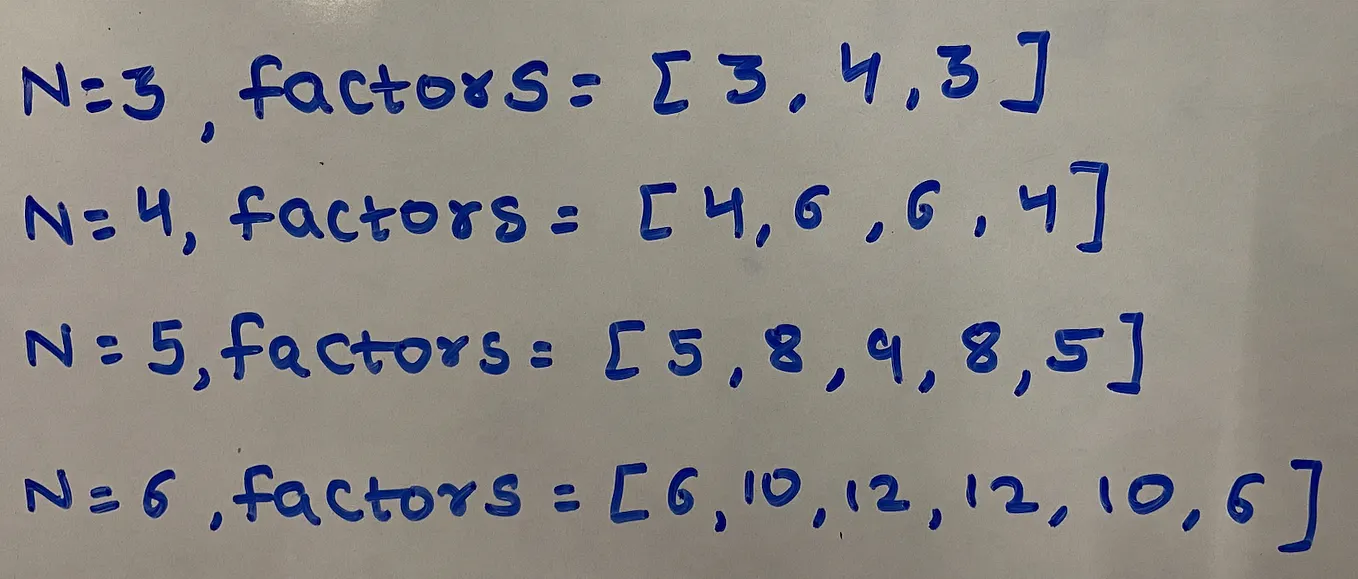 N=3, factors= [3,4,3]
N=4, factors= [4,6,6,4]
N=5, factors= [5,8,9,8,5]
N=6, factors= [6,10,12,12,10,6]